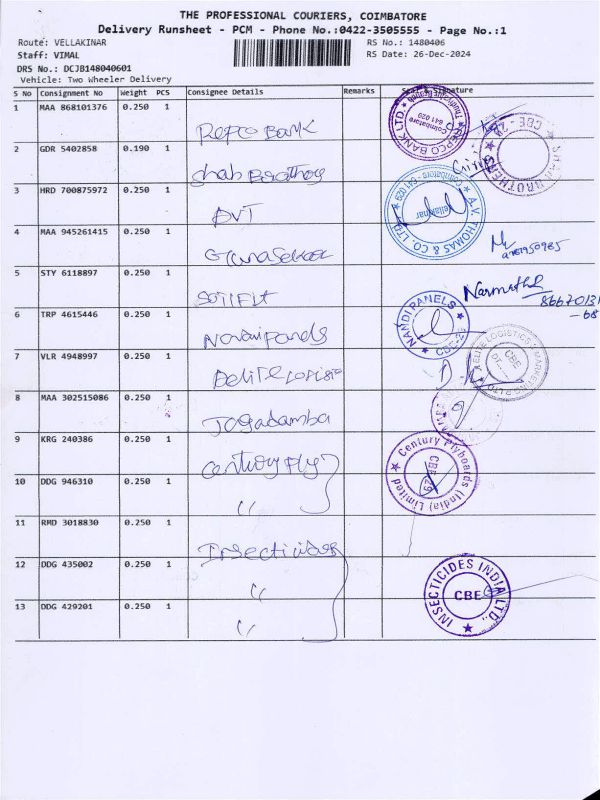 THE PROFESSIONAL COURIERS, COIMBATORE
Delivery Runsheet - PCM - Phone No.:0422-3505555 - Page No.:1
Route: VELLAKINAR RS No.: 1480406
Staff: VIMAL RS Date: 26-Dec-2024
DRS No.: DCJB148040601
Vehicle: Two Wheeler Delivery
S No Consignment No Weight PCS Consignee Details Remarks Signature
1 MAA 868101376 0.250 1 Repco Bank
REPCO BANK LTD. Coimbatore 641 029
2 GDR 5402858 0.190 1 Shah Brothers
CBE
3 HRD 700875972 0.250 1 AVT
A.V. THOMAS & CO. LTD. Vellakinar Coimbatore - 641 029
4 MAA 945261415 0.250 1
5 STY 6118897 0.250 1
6 TRP 4615446 0.250 1
NANDI PANELS CBE-2
7 VLR 4948997 0.250 1
ELITE LOGISTICS CBE
8 MAA 302515086 0.250 1 Jagadamba
9 KRG 240386 0.250 1 Century Ply
Century Plyboards (India) Limited CBE 29
10 DDG 946310 0.250 1 "
11 RMD 3018830 0.250 1
12 DDG 435002 0.250 1 "
INSECTICIDES INDIA LTD., CBE
13 DDG 429201 0.250 1 "